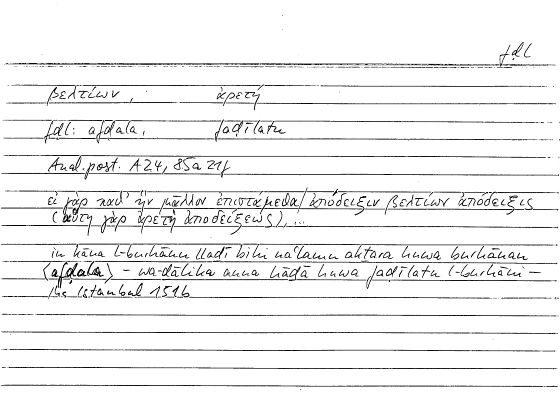 fḍl
βελτίων, ἀρετή
fḍl: afḍala, faḍīlatu
Anal. post. A 24, 85a 21f
εἰ γὰρ καθ' ἣν μᾶλλον ἐπιστάμεθα/ἀπόδειξιν βελτίων ἀπόδειξις
(αὕτη γὰρ ἀρετὴ ἀποδείξεως), ...
in kāna l-burhānu lladī bihi na'lamu aktara huwa burhānan
<afḍala> – wa-dālika anna hādā huwa faḍīlatu l-burhāni –
Istanbul 151b